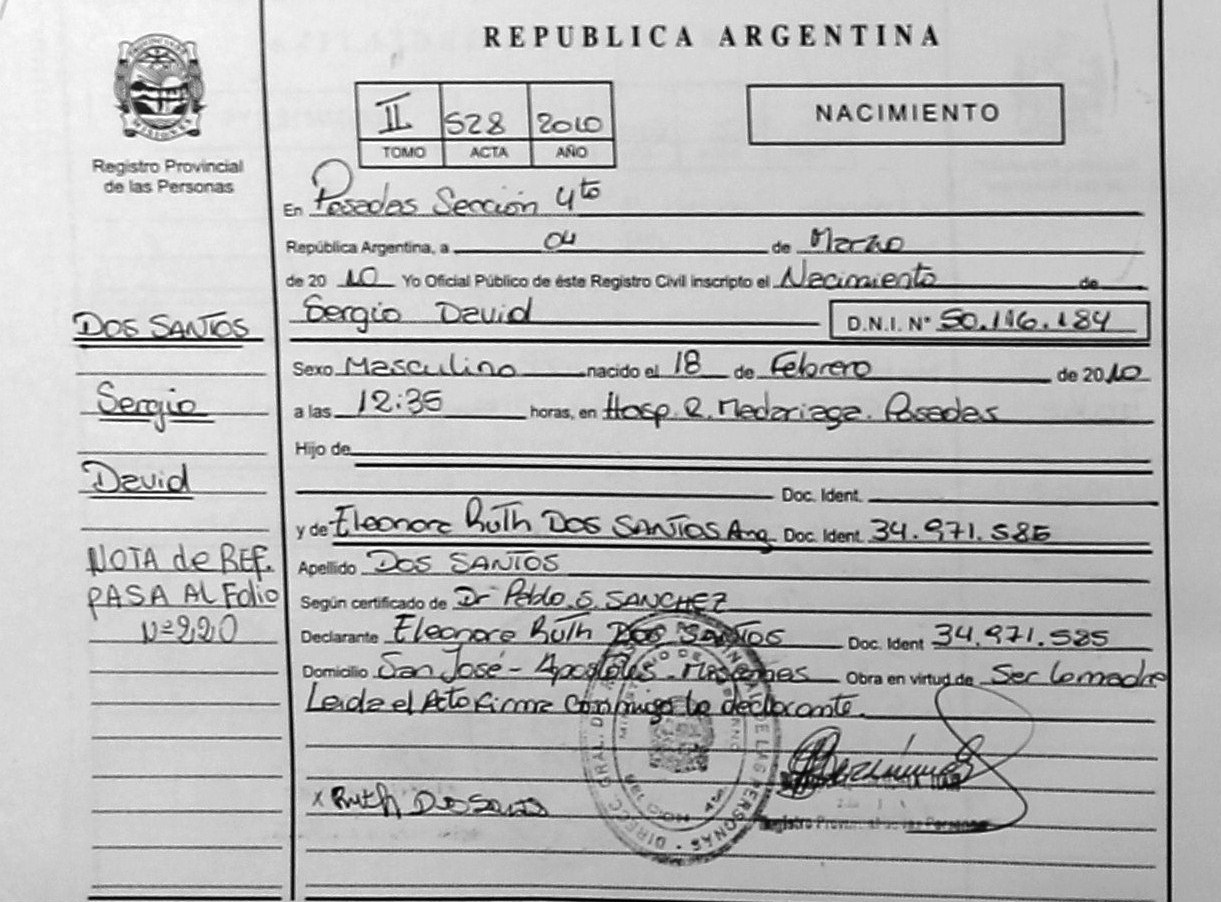 REPUBLICA ARGENTINA
PROVINCIA DE MISIONES
Registro Provincial
de las Personas
II 528 2010
TOMO ACTA AÑO
NACIMIENTO
En Posadas Sección 4to
República Argentina, a 04 de Marzo
de 2010 Yo Oficial Público de éste Registro Civil inscripto el Nacimiento de
Sergio David D.N.I. N° 50.116.184
Sexo Masculino nacido el 18 de Febrero de 2010
a las 12:35 horas, en Hosp. R. Madariaga. Posadas
Hijo de
Doc. Ident.
y de Eleonora Ruth DOS SANTOS Arg. Doc. Ident. 34.971.585
Apellido DOS SANTOS
Según certificado de Dr Pablo. S. SANCHEZ
Declarante Eleonora Ruth DOS SANTOS Doc. Ident 34.971.585
Domicilio San José - Apostoles - Misiones Obra en virtud de Ser la madre
Leida el Acta firma conmigo la declarante.
x Ruth Dos Santos
Registro Provincial de las Personas
DOS SANTOS
Sergio
David
NOTA de REF.
PASA AL Folio
N=220
DIRECC. GRAL. DE PROVINCIAL DE LAS PERSONAS
MINISTERIO DE GOBIERNO